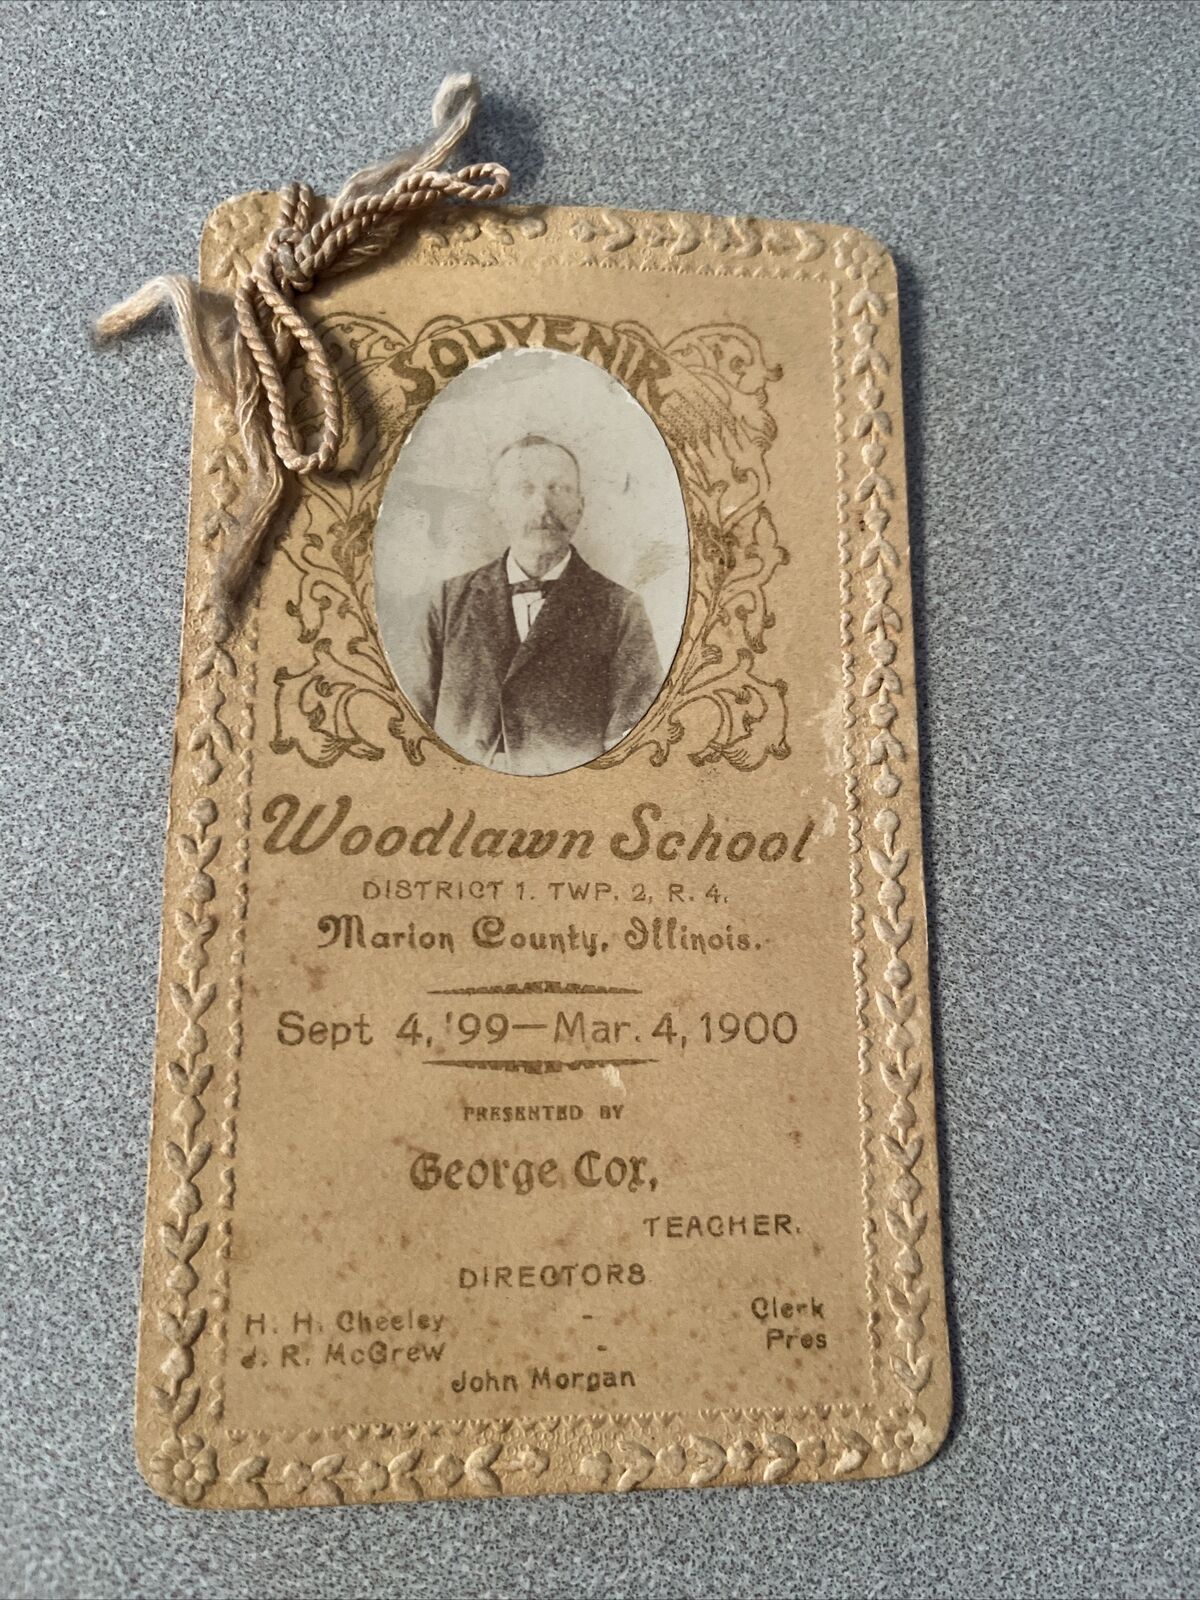 SOUVENIR
Woodlawn School
DISTRICT 1. TWP. 2, R. 4.
Marion County, Illinois.
Sept 4, '99—Mar. 4, 1900
PRESENTED BY
George Cox,
TEACHER.
DIRECTORS
H. H. Cheeley - Clerk
J. R. McGrew - Pres
John Morgan